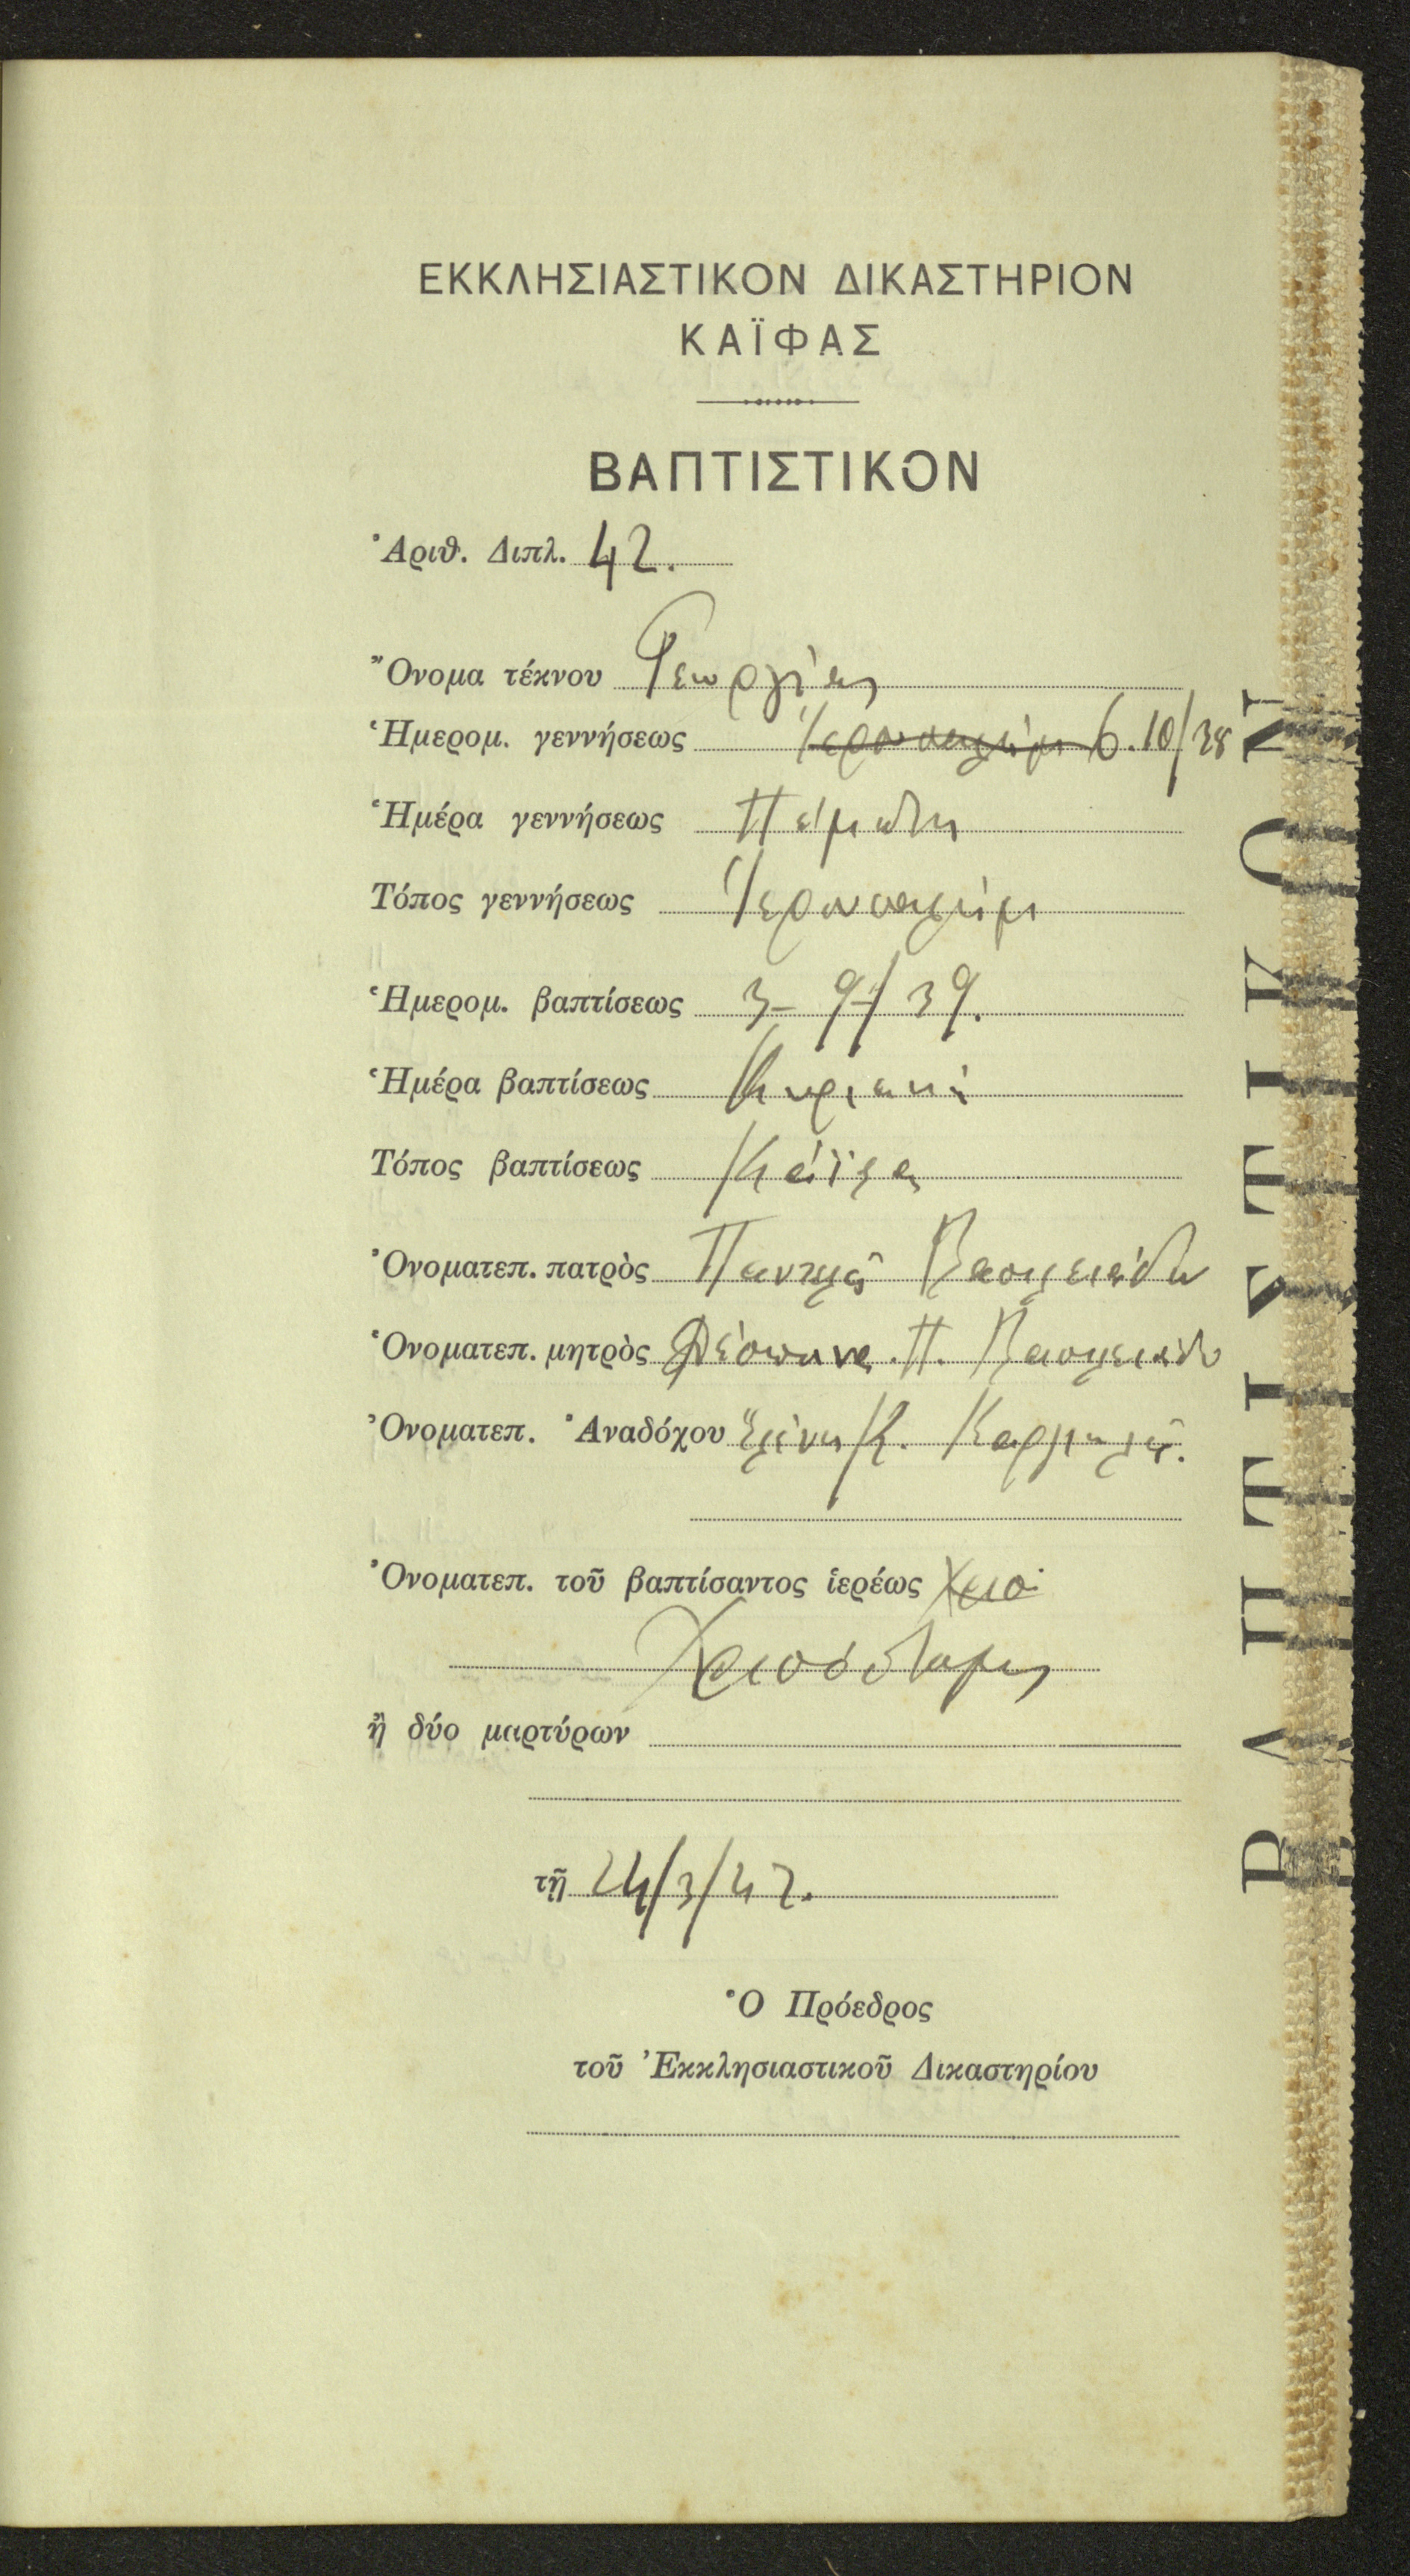 ΕΚΚΛΗΣΙΑΣΤΙΚΟΝ ΔΙΚΑΣΤΗΡΙΟΝ
ΚΑΪΦΑΣ
ΒΑΠΤΙΣΤΙΚΟΝ
Ἀριθ. Διπλ. 42.
Ὄνομα τέκνου Γεωργίας
Ἡμερομ. γεννήσεως Ἱερουσαλήμ 6.10/38
Ἡμέρα γεννήσεως Πέμπτη
Τόπος γεννήσεως Ἱερουσαλήμ
Ἡμερομ. βαπτίσεως 3-9/39.
Ἡμέρα βαπτίσεως Κυριακή
Τόπος βαπτίσεως Κάϊφα
Ὀνοματεπ. πατρὸς Παντελῆ Βασιλειάδη
Ὀνοματεπ. μητρὸς Δέσποινα Π. Βασιλειάδου
Ὀνοματεπ. Ἀναδόχου Ἑλένη Κ.
Ὀνοματεπ. τοῦ βαπτίσαντος ἱερέως Χρισ
Χρισόστομος
ἢ δύο μαρτύρων
τῇ 24/3/42.
Ὁ Πρόεδρος
τοῦ Ἐκκλησιαστικοῦ Δικαστηρίου
ΒΑΠΤΙΣΤΙΚΟΝ